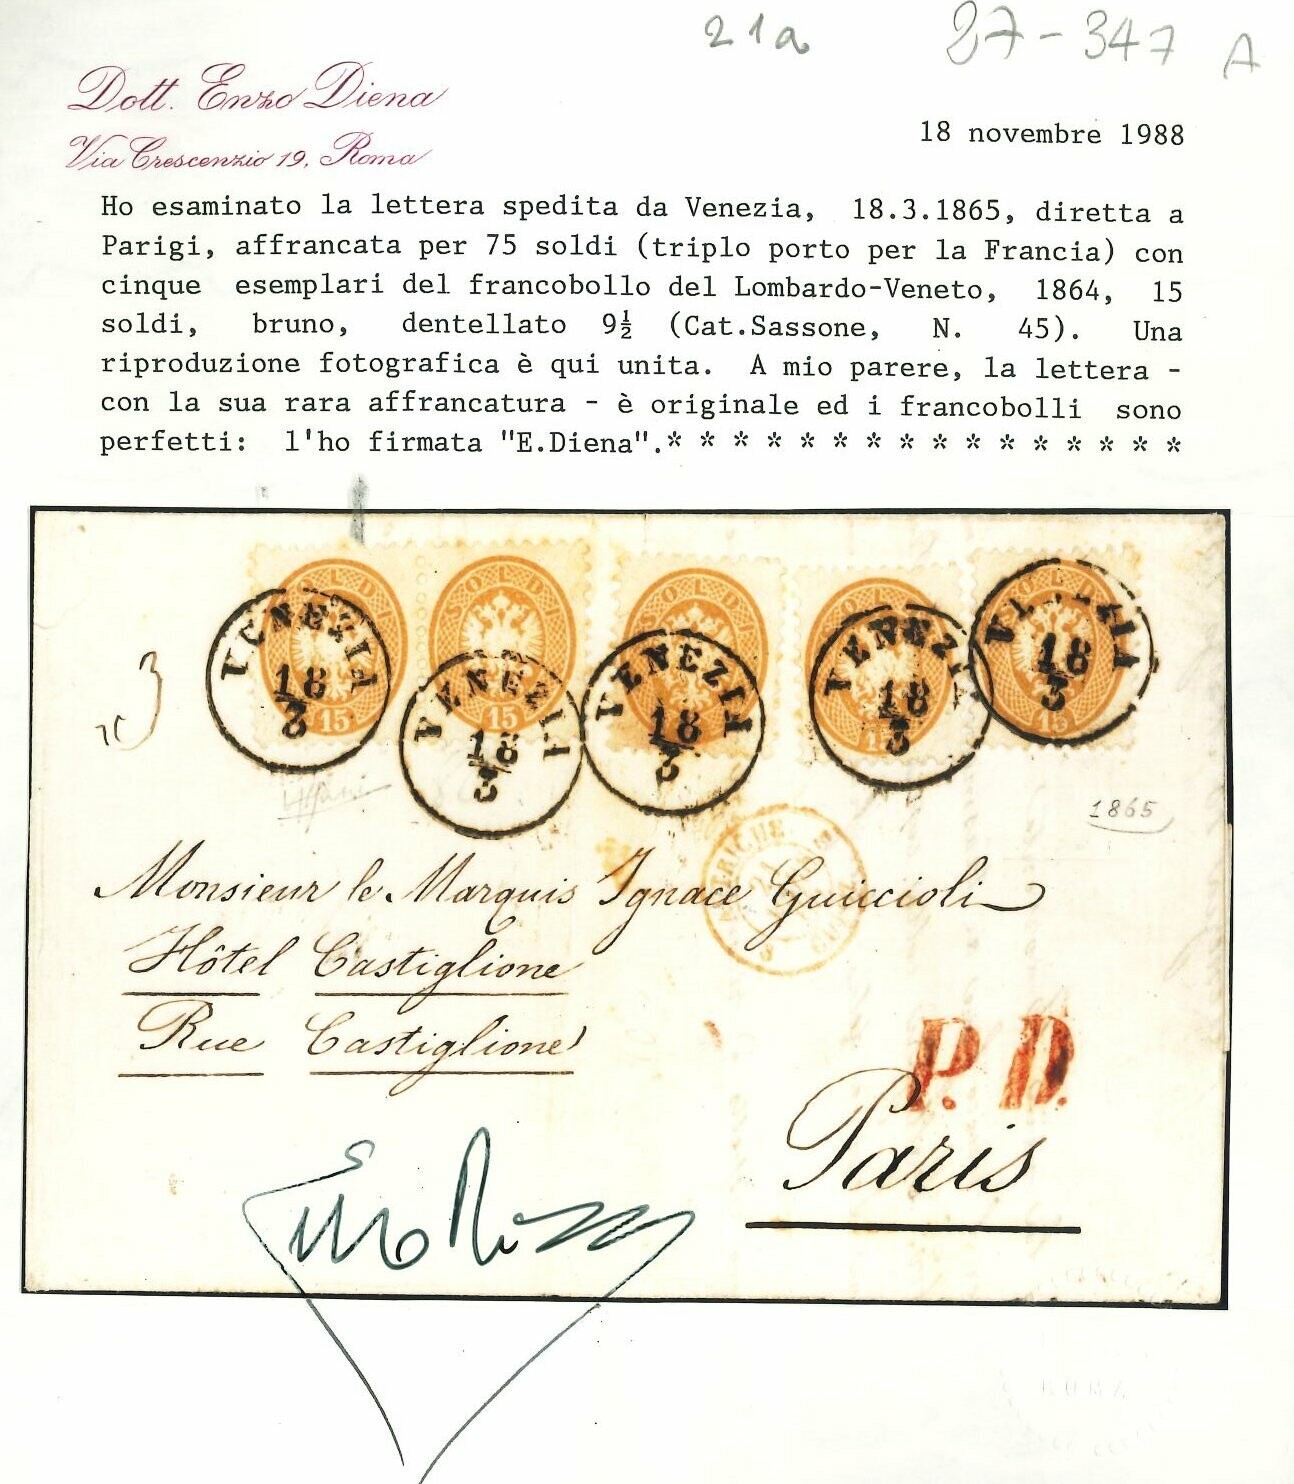 21a 27-347 A
Dott. Enzo Diena
Via Crescenzio 19, Roma
18 novembre 1988
Ho esaminato la lettera spedita da Venezia, 18.3.1865, diretta a
Parigi, affrancata per 75 soldi (triplo porto per la Francia) con
cinque esemplari del francobollo del Lombardo-Veneto, 1864, 15
soldi, bruno, dentellato 9½ (Cat.Sassone, N. 45). Una
riproduzione fotografica è qui unita. A mio parere, la lettera -
con la sua rara affrancatura - è originale ed i francobolli sono
perfetti: l'ho firmata "E.Diena".* * * * * * * * * * * * * * * *
SOLDI SOLDI SOLDI SOL SOLDI
VENEZIA VENEZIA VENEZIA VENEZIA VENEZIA
18 18 18 18 18
3 3 3 3 3
15 15 15 15
3
1865
Monsieur le Marquis Ignace Guiccioli
Hôtel Castiglione
Rue Castiglione
P.D.
Paris
ROMA